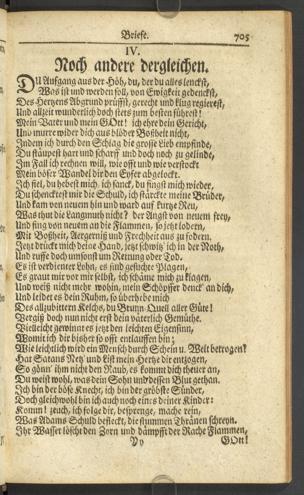 Briefe. 705
IV.
Noch andere dergleichen.
DU Aufgang aus der Höh, du, der du alles lenckst,
Was ist und werden soll, von Ewigkeit gedenckst,
Des Hertzens Abgrund prüffst, gerecht und klug regierest,
Und allzeit wunderlich doch stets zum besten führest!
Mein Vater und mein GOtt! ich ehre dein Gericht,
Und murre wider dich aus blöder Boßheit nicht,
Indem ich durch den Schlag die grosse Lieb empfinde,
Du stäupest hart und scharff und doch noch zu gelinde,
Im Fall ich rechnen will, wie offt und wie verstockt
Mein böser Wandel dir den Eyfer abgelockt.
Ich fiel, du hebest mich, ich sanck, du fingst mich wieder,
Du schencktest mir die Schuld, ich stärckte meine Brüder,
Und kam von neuem hin und ward auf kurtze Reu,
Was thut die Langmuth nicht? der Angst von neuem frey,
und fing von neuem an die Flammen, so jetzt lodern,
Mit Boßheit, Aergerniß und Frechheit aus zu fodern.
Jetzt drückt mich deine Hand, jetzt schwitz' ich in der Noth,
Und ruffe doch umsonst um Rettung oder Tod.
Es ist verdienter Lohn, es sind gesuchte Plagen,
Es graut mir vor mir selbst, ich schäme mich zu klagen,
Und weiß nicht mehr wohin, mein Schöpffer denck' an dich,
Und leidet es dein Ruhm, so überhebe mich
Des allzubittern Kelchs, du Brunn-Quell aller Güte!
Vergiß doch nun nicht erst dein väterlich Gemüthe.
Vielleicht gewinnt es jetzt den leichten Eigensinn,
Womit ich dir bisher so offt entlauffen bin;
Wie leichtlich wird ein Mensch durch Schein u. Welt betrogen!
Hat Satans Netz und List mein Hertze dir entzogen,
So gönn' ihm nicht den Raub, es kommt dich theuer an,
Du weist wohl, was dein Sohn und dessen Blut gethan.
Ich bin der böse Knecht, ich bin der gröste Sünder,
Doch gleichwohl bin ich auch noch eines deiner Kinder:
Komm! zeuch, ich folge dir, besprenge, mache rein,
Was Adams Schuld befleckt, die stummen Thränen schreyn.
Ihr Wasser löscht den Zorn und dämpfft der Rache Flammen,
Yy GOtt!